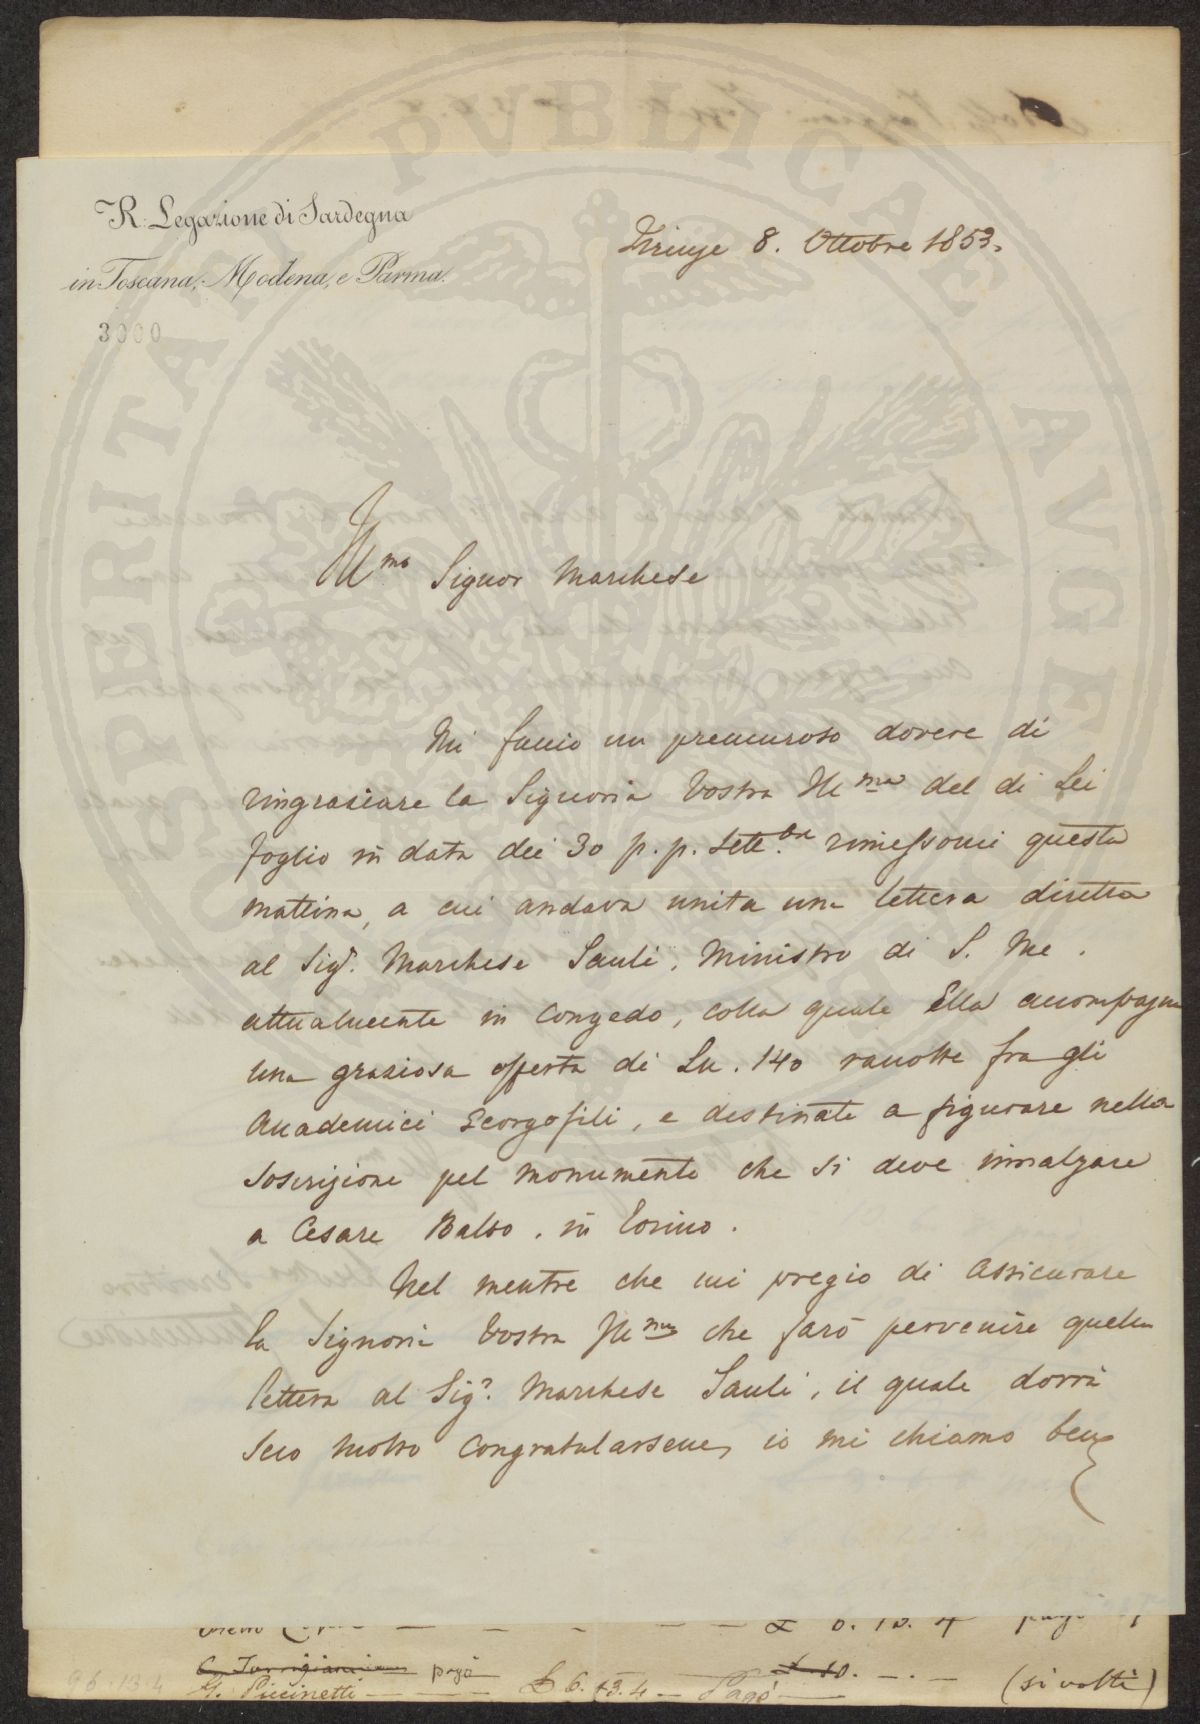 R. Legazione di Sardegna
in Toscana, Modena, e Parma.
3000
Firenze 8. Ottobre 1853.
Ill.mo Signor Marchese
Mi faccio un premuroso dovere di
ringraziare la Signoria Vostra Ill.ma del di Lei
foglio in data dei 30 p. p. Sett.bre rimessomi questa
mattina, a cui andava unita una lettera diretta
al Sig.r Marchese Sauli, Ministro di S. M.
attualmente in congedo, colla quale Ella accompagna
una graziosa offerta di Ln. 140 raccolte fra gli
Accademici Georgofili, e destinate a figurare nella
soscrizione pel monumento che si deve innalzare
a Cesare Balbo, in Torino.
Nel mentre che mi pregio di assicurare
la Signoria Vostra Ill.ma che farò pervenire quella
lettera al Sig.r Marchese Sauli, il quale dovrà
seco molto congratularsene, io mi chiamo ben
£ 6. 13. 4 pagò
C. Torrigiani pagò £ 10. — . —
G. Piccinetti — £ 6. 13. 4 — Pagò — (si volti)
96.13.4
PERITAE PVBLICAE AVGENDAE